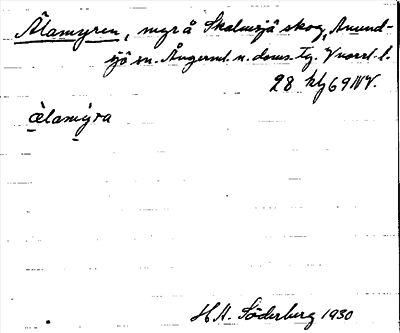 Ålamyren, myr å Skalmsjö skog, Anund-
sjö sn. Ångerml. n. doms. tg. V norrl. l.
28 kbg 69 NV.
ælamyra
H. A. Söderberg 1930